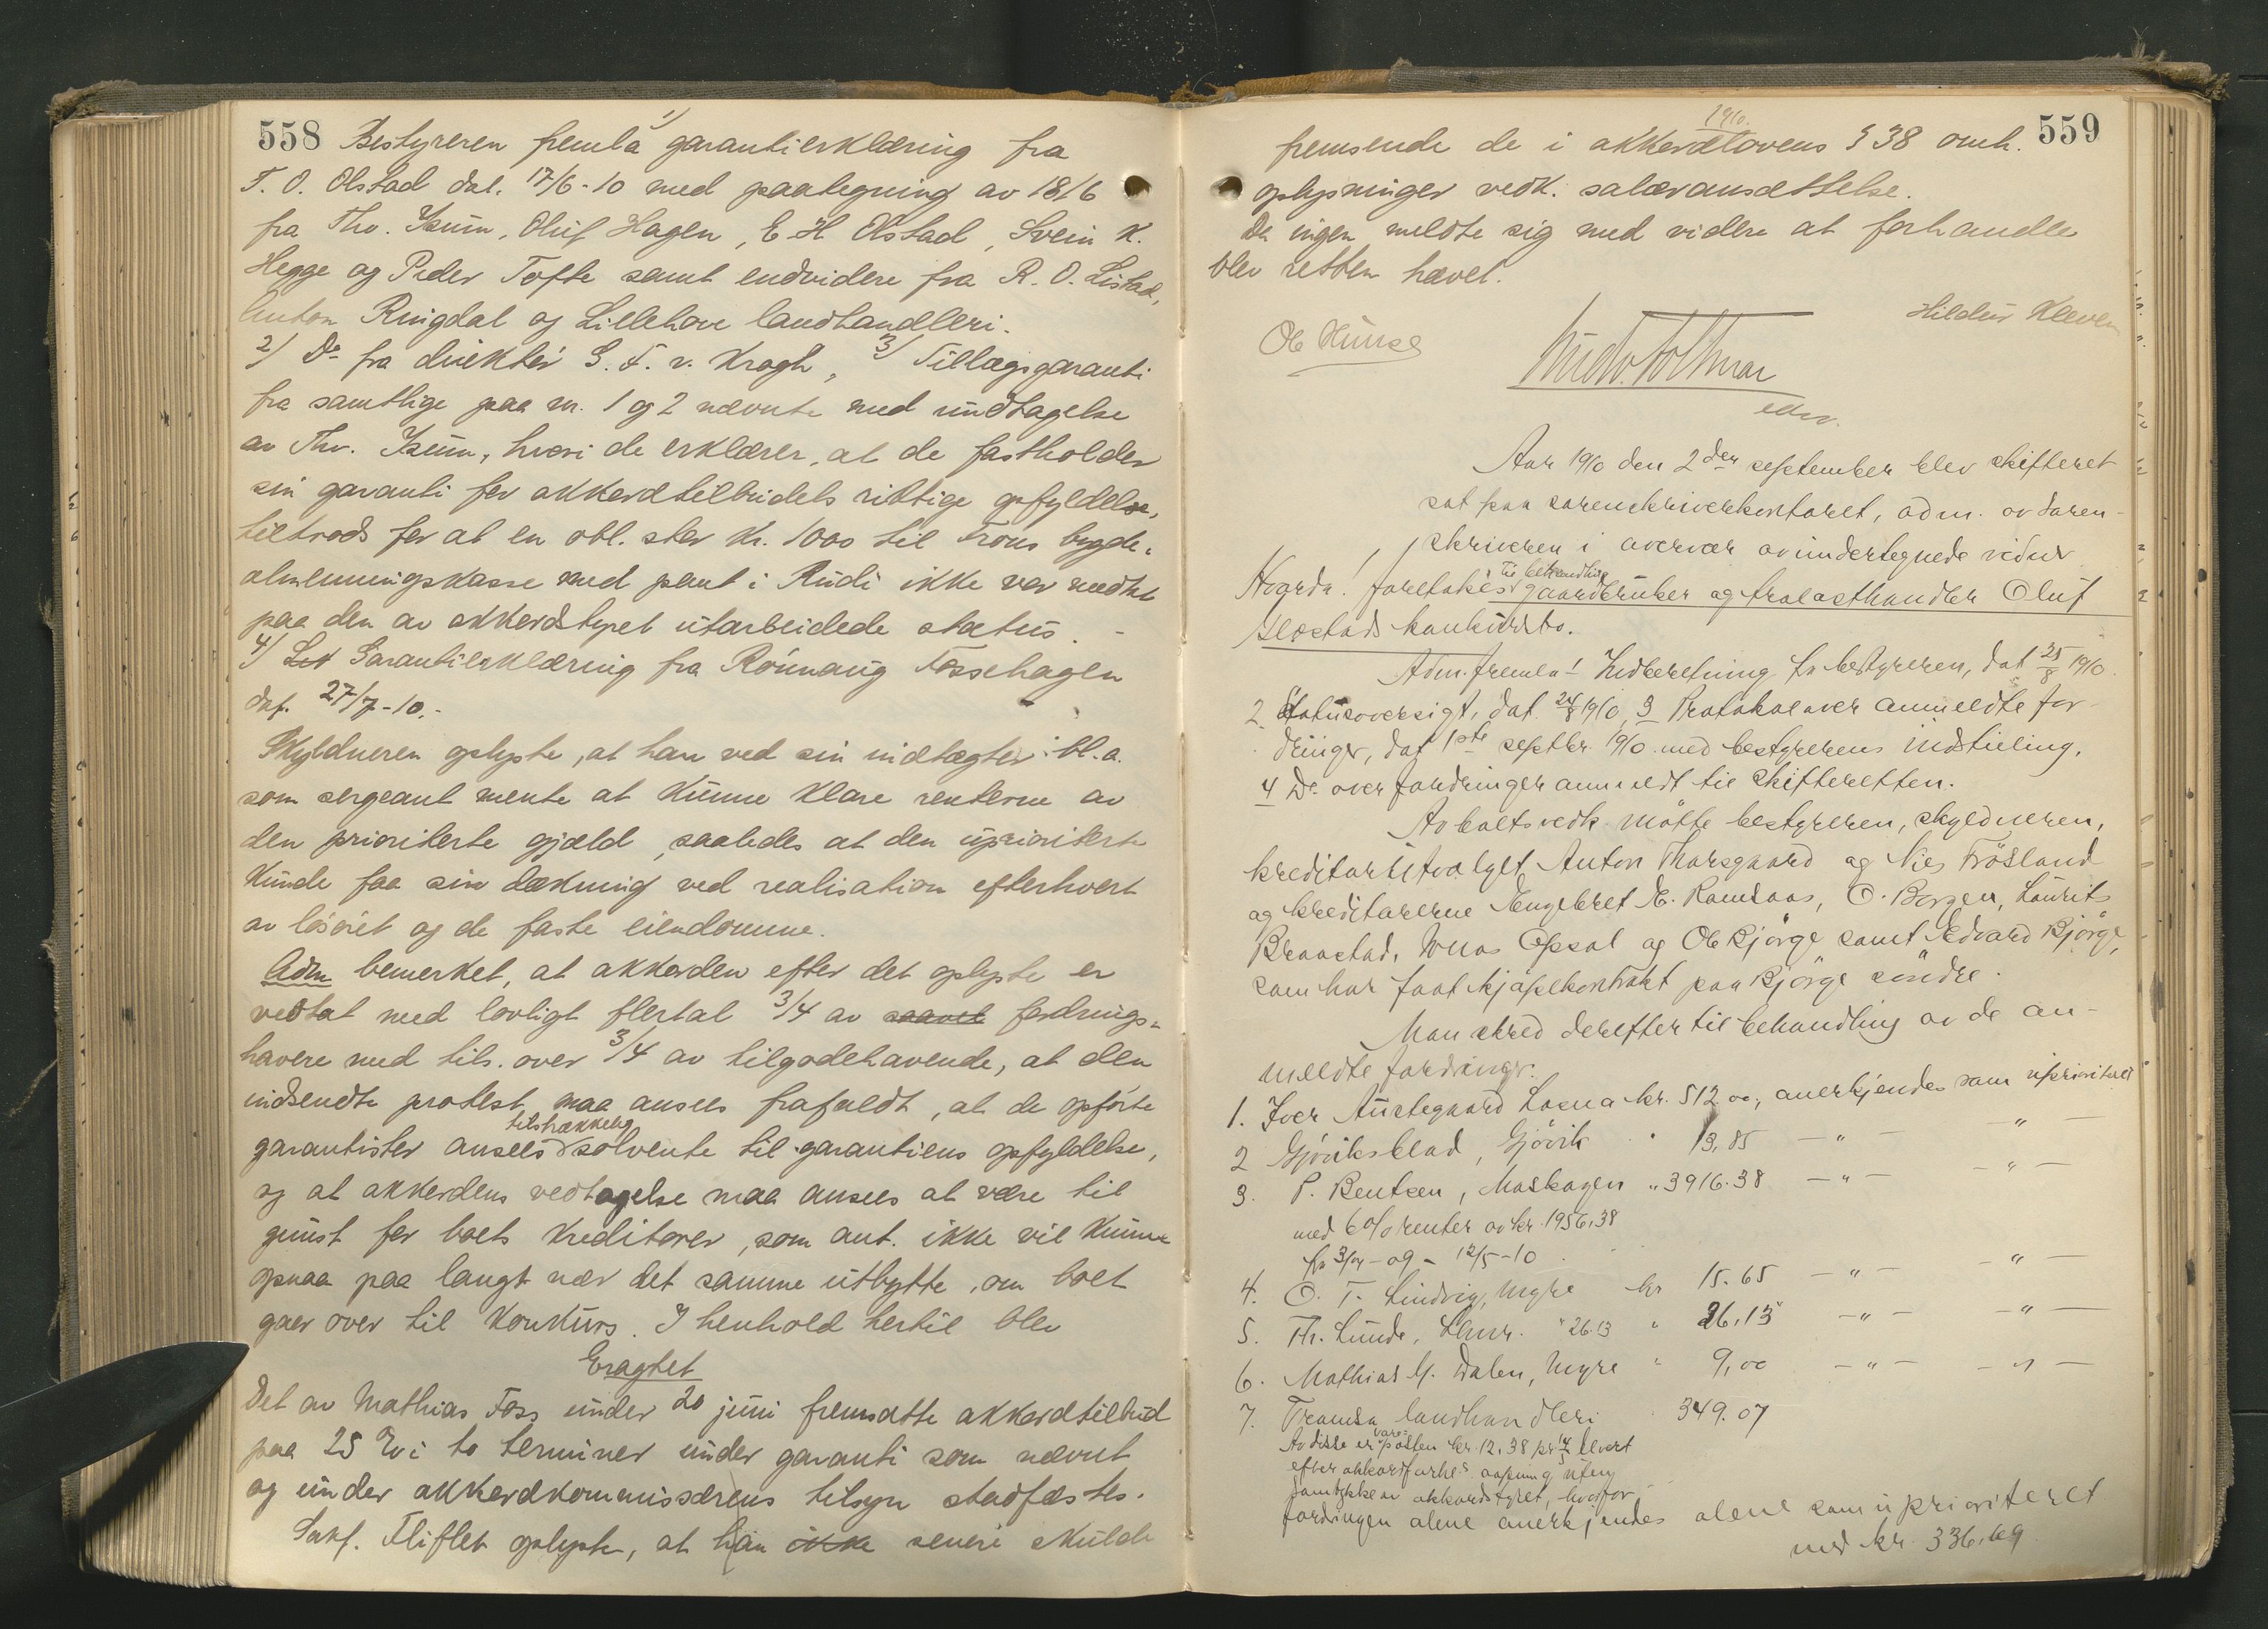 558 Bestyreren fremla 1) garantierklæring fra
T. O. Olstad dat. 17/6-10 med paategning av 18/6
fra Thv. Isum, Oluf Hagen, E H Olstad, Svein K.
Hegge og Peder Tofte samt endvidere fra R. O. Listad,
Anton Ringdal og Lillehove landhandleri.
2) Do fra direktør G. F. v. Krogh, 3) Tillægsgaranti
fra samtlige paa nr. 1 og 2 nævnte med undtagelse
av Thv. Isum, hvori de erklærer, at de fastholder
sin garanti for akkordtilbudets rigtige opfyldelse,
tiltrods for at en obl. stor kr. 1000 til Frons bygde-
almenningskasse med pant i Rudi ikke var medtat
paa den av akkordstyret utarbeidede status. -
4) Garantierklæring fra Rönnaug Fossehagen
dat. 27/7-10.-
Skyldneren oplyste, at han ved sin indtægter bl. a.
som sergeant mente at kunne klare renterne av
den prioriterte gjæld, saaledes at den uprioriterte
kunde faa sin dækning ved realisation efterhvert
av løsøret og de faste eiendomme.
Adm bemerket, at akkorden efter det oplyste er
vedtat med lovligt flertal 3/4 av saavel fordrings-
havere med tils. over 3/4 av tilgodehavende, at den
indsendte protest maa ansees frafaldt, at de opførte
garantister ansees tilstrækkelig solvente til garantiens opfyldelse,
og at akkordens vedtagelse maa ansees at være til
gunst for boets kreditorer, som ant. ikke vil kunne
opnaa paa langt nær det samme utbytte, om boet
gaar over til konkurs. I henhold hertil blev
Eragtet
Det av Mathias Foss under 20 juni fremsatte akkordtilbud
paa 25 % i to terminer under garanti som nævnt
og under akkordkommissærens tilsyn stadfæstes.
Sakf. Fliflet oplyste, at han ikke senere skulde
559
fremsende de i akkordlovens § 38 omh.
oplysninger vedk. salæransættelse.
Da ingen meldte sig med videre at forhandle
blev retten hævet.
Hildur Kleven
Aar 1910 den 2den september blev skifteret
sat paa sorenskriverkontoret, adm. av soren-
skriveren i overvær av undertegnede vidner
Hvorda! foretokes til behandling gaardbruker og trælasthandler Oluf
konkursbo.
Adm. fremla 1 Indberetning fra bestyreren, dat 25/8 1910.
2 Statusoversigt, dat. 24/8 1910, 3 Protokol over anmeldte for-
dringer, dat 1ste septbr. 1910 med bestyrerens indstilling,
4 Do over fordringer anmeldt til skifteretten.
Av boets vedk. møtte bestyreren, skyldneren,
kreditorutvalget Anton Thorsgaard og Nils Frösland
og kreditorerne Engebret E. Ramsaas, O. Borgen, Laurits
Braastad, Jonas Opsal og Ole Bjørge samt Edvard Bjørge,
som har faat kjøpekontrakt paa Bjørge søndre.
Man skred derefter til behandling av de an-
meldte fordringer.
1. Iver Austegaard Losna kr. 512.00, anerkjendes som uprioritert
2 Gjøviksblad, Gjøvik " 13,85 - " - - " -
3. P. Bentsen, Moskogen " 3916.38 - " - - " -
med 6 o/o renter av kr. 1956,38
4. O. T. Lindvig, Myre kr 15.65 - " - - " -
5. Th. Lunde, Lhmr. " 26.13 " 26,13 - " - - " -
6. Mathias M. Dalen, Myre " 9,00 - " - - " -
7. Tromsa landhandleri 349.07
Av disse er vareposten kr. 12,38 levert
efter akkordforh.s aapning uten
samtykke av akkordstyret, hvorfor
fordringen alene anerkjendes alene som uprioriteret
med kr. 336.69